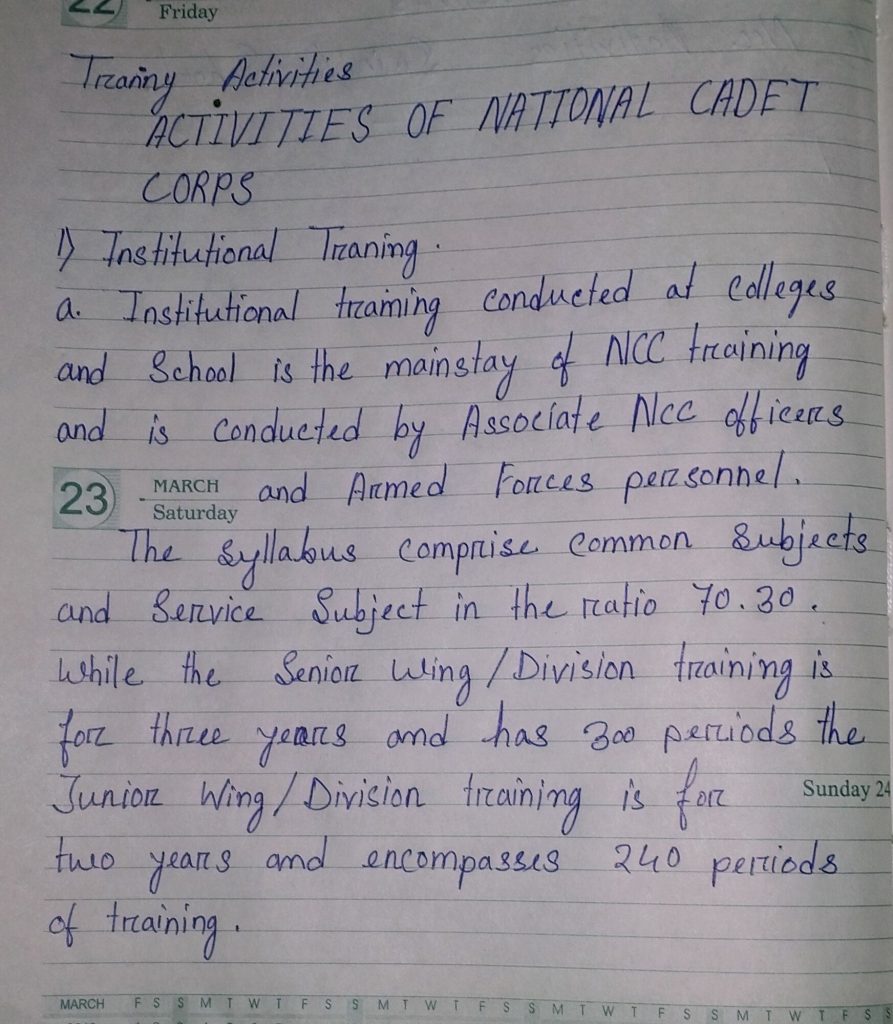 22 Friday
Tranny Activities
ACTIVITIES OF NATIONAL CADET
CORPS
1) Institutional Traning.
a. Institutional training conducted at colleges
and School is the mainstay of NCC training
and is conducted by Associate NCC officers
23 MARCH Saturday and Armed Forces personnel.
The Syllabus comprise common Subjects
and Service Subject in the ratio 70.30.
While the Senior Wing / Division training is
for three years and has 300 periods the
Junior Wing / Division training is for Sunday 24
two years and encompasses 240 periods
of training.
MARCH F S S M T W T F S S M T W T F S S M T W T F S S M T W T F S S